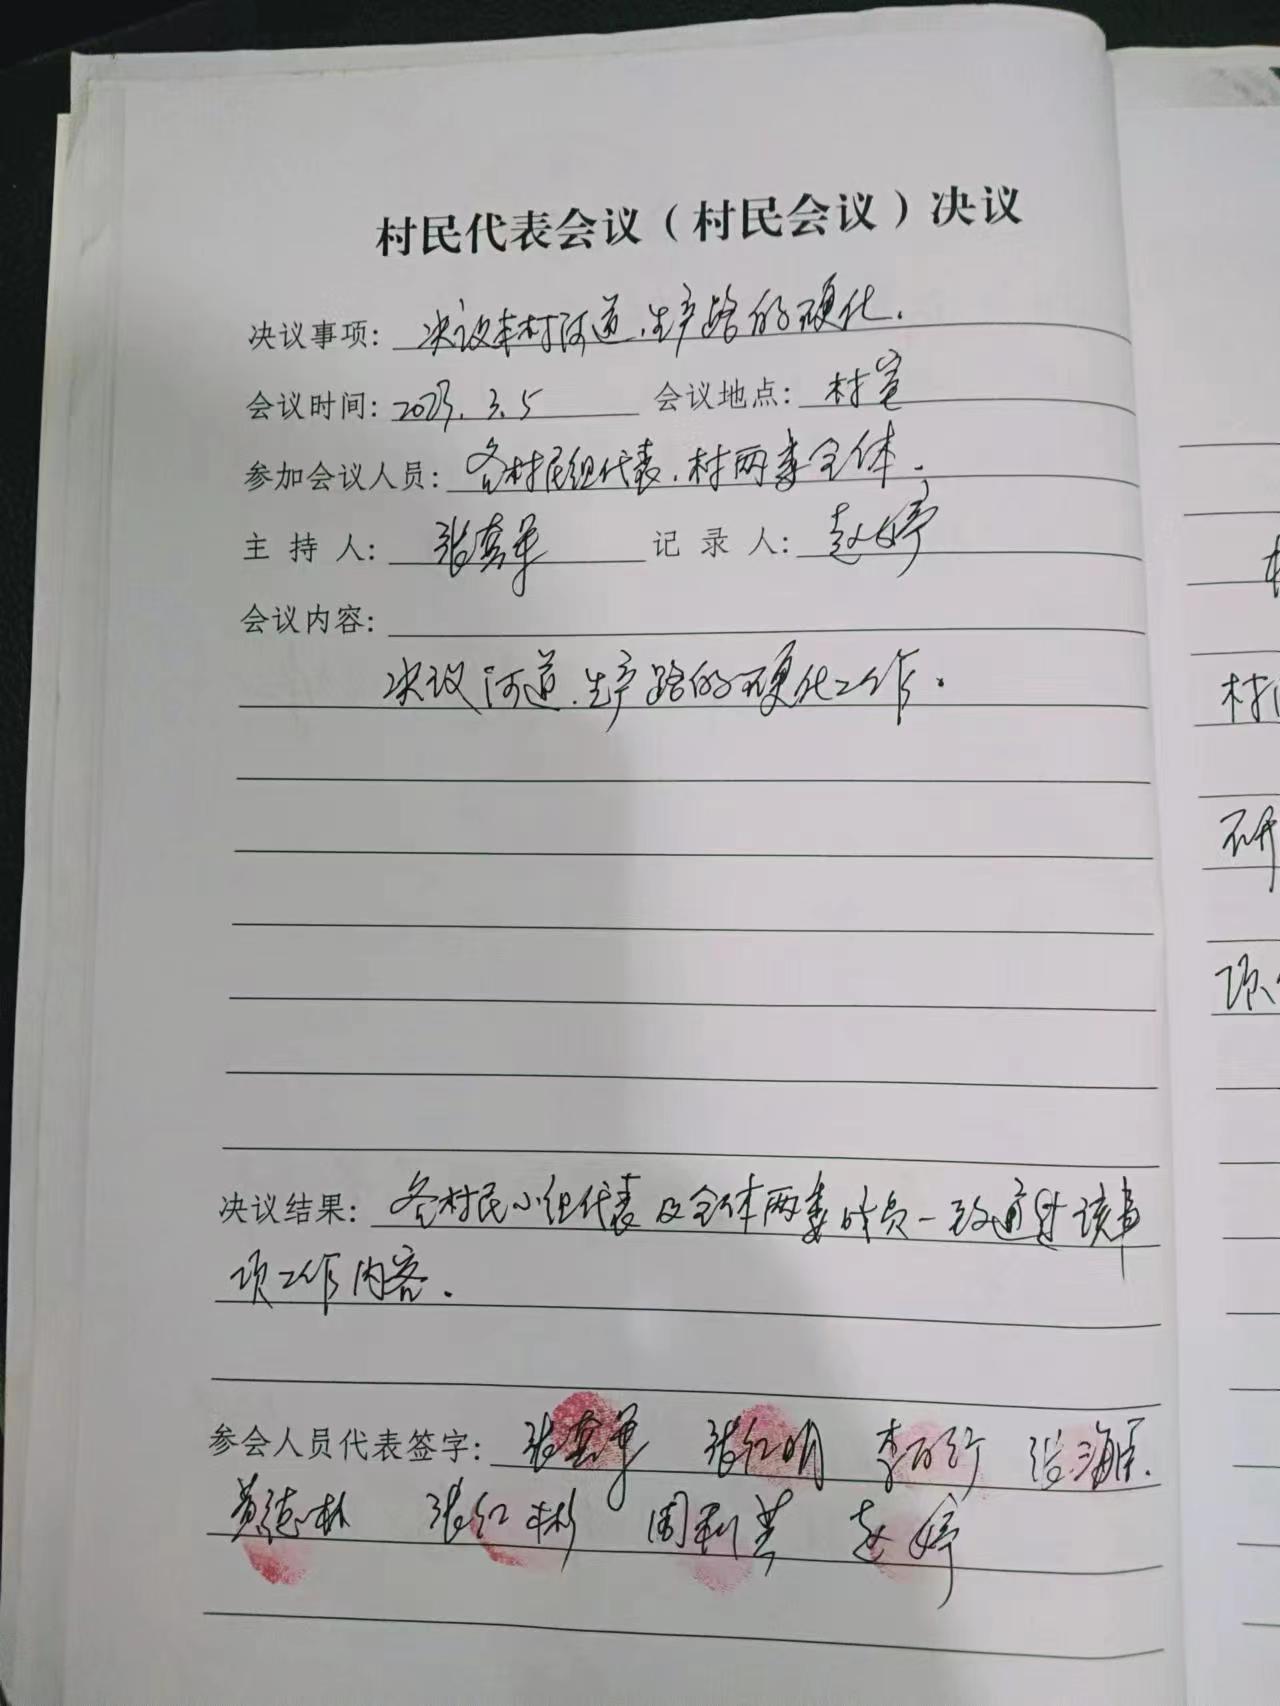 村民代表会议（村民会议）决议
决议事项：决议本村河道、生产路的硬化.
会议时间：2023.3.5 会议地点：村室
参加会议人员：各村民组代表、村两委全体.
主持人：张 军 记录人：赵婷
会议内容：
决议河道、生产路的硬化工作.
决议结果：各村民小组代表及全体两委成员一致通过该事
项工作内容.
参会人员代表签字：张 军 张红明 李 张海军.
黄德林 张红彬 周利 赵婷
村
研
项